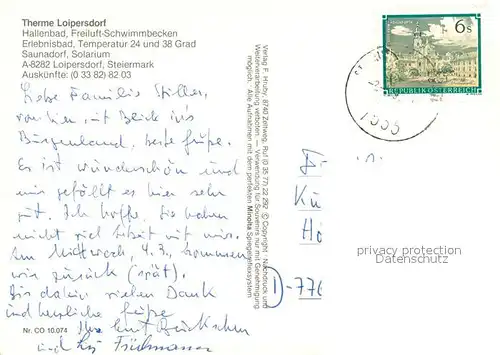 Therme Loipersdorf
Hallenbad, Freiluft-Schwimmbecken
Erlebnisbad, Temperatur 24 und 38 Grad
Saunadorf, Solarium
A-8282 Loipersdorf, Steiermark
Auskünfte: (0 33 82) 82 03
Liebe Familie Stiller,
von hier, mit Blick ins
Burgenland, beste Grüße.
Es ist wunderschön und
mir gefällt es hier sehr
gut. Ich hoffe, Sie haben
nicht viel Arbeit mit mir.
Am Mittwoch, 4.3., kommen
wir zurück (spät).
Bis dahin vielen Dank
und herzliche Grüße
Ihre
und
Nr. CO 10.074
Verlag F. Hruby, 8740 Zeltweg, Ruf (0 35 77) 22 292 © Copyright. Nachdruck und
Weiterverarbeitung verboten. — Verwendung für Souvenirs nur mit Genehmigung
möglich. — Alle Aufnahmen mit dem perfekten Minolta Spiegelreflexsystem
6 S
REPUBLIK ÖSTERREICH
Kü
Ho
D-776
privacy protection
Datenschutz